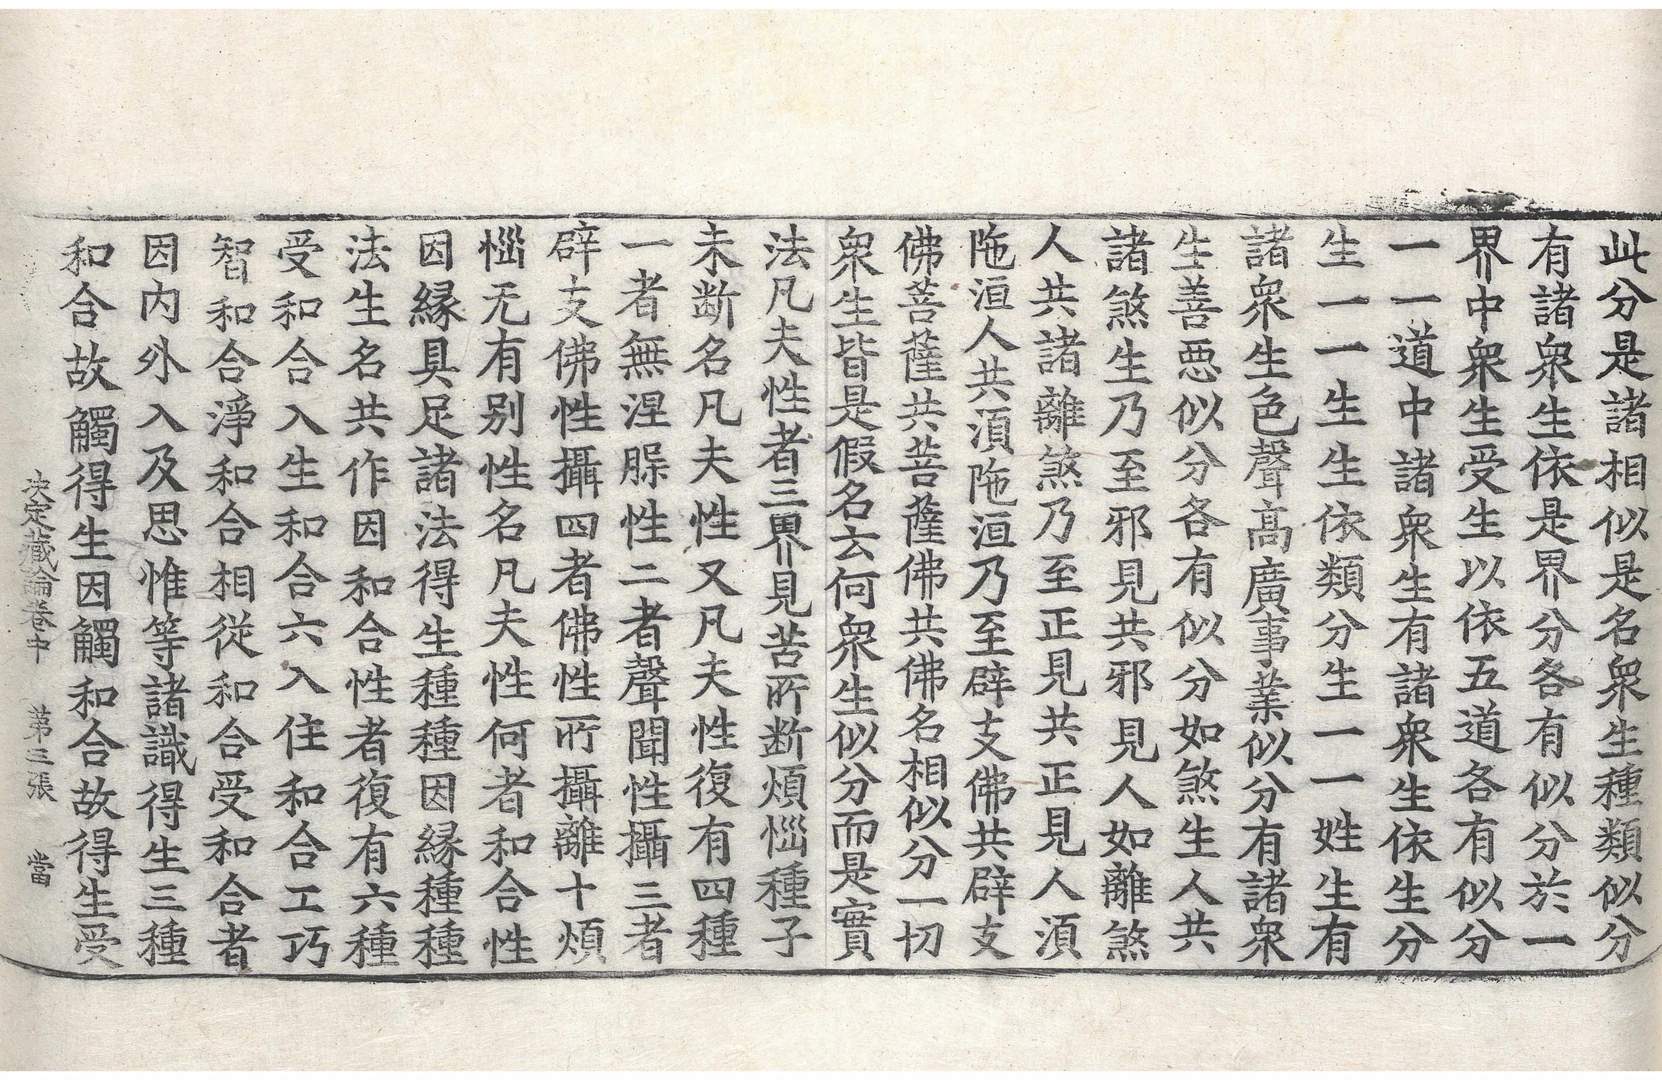 此分是諸相似是名衆生種類似分
有諸衆生依是界分各有似分於一
界中衆生受生以依五道各有似分
一一道中諸衆生有諸衆生依生分
生一一生生依類分生一一姓生有
諸衆生色聲高廣事業似分有諸衆
生善惡似分各有似分如煞生人共
諸煞生乃至邪見共邪見人如離煞
人共諸離煞乃至正見共正見人湏
陁洹人共湏陁洹乃至辟支佛共辟支
佛菩薩共菩薩佛共佛名相似分一切
衆生皆是假名云何衆生似分而是實
法凡夫性者三界見苦所断煩惱種子
未断名凡夫性又凡夫性復有四種
一者無涅槃性二者聲聞性攝三者
辟支佛性攝四者佛性所攝離十煩
惱无有别性名凡夫性何者和合性
因縁具足諸法得生種種因縁種種
法生名共作因和合性者復有六種
受和合入生和合六入住和合工巧
智和合淨和合相從和合受和合者
因内外入及思惟等諸識得生三種
和合故觸得生因觸和合故得生受
決定藏論卷中 第三張 當